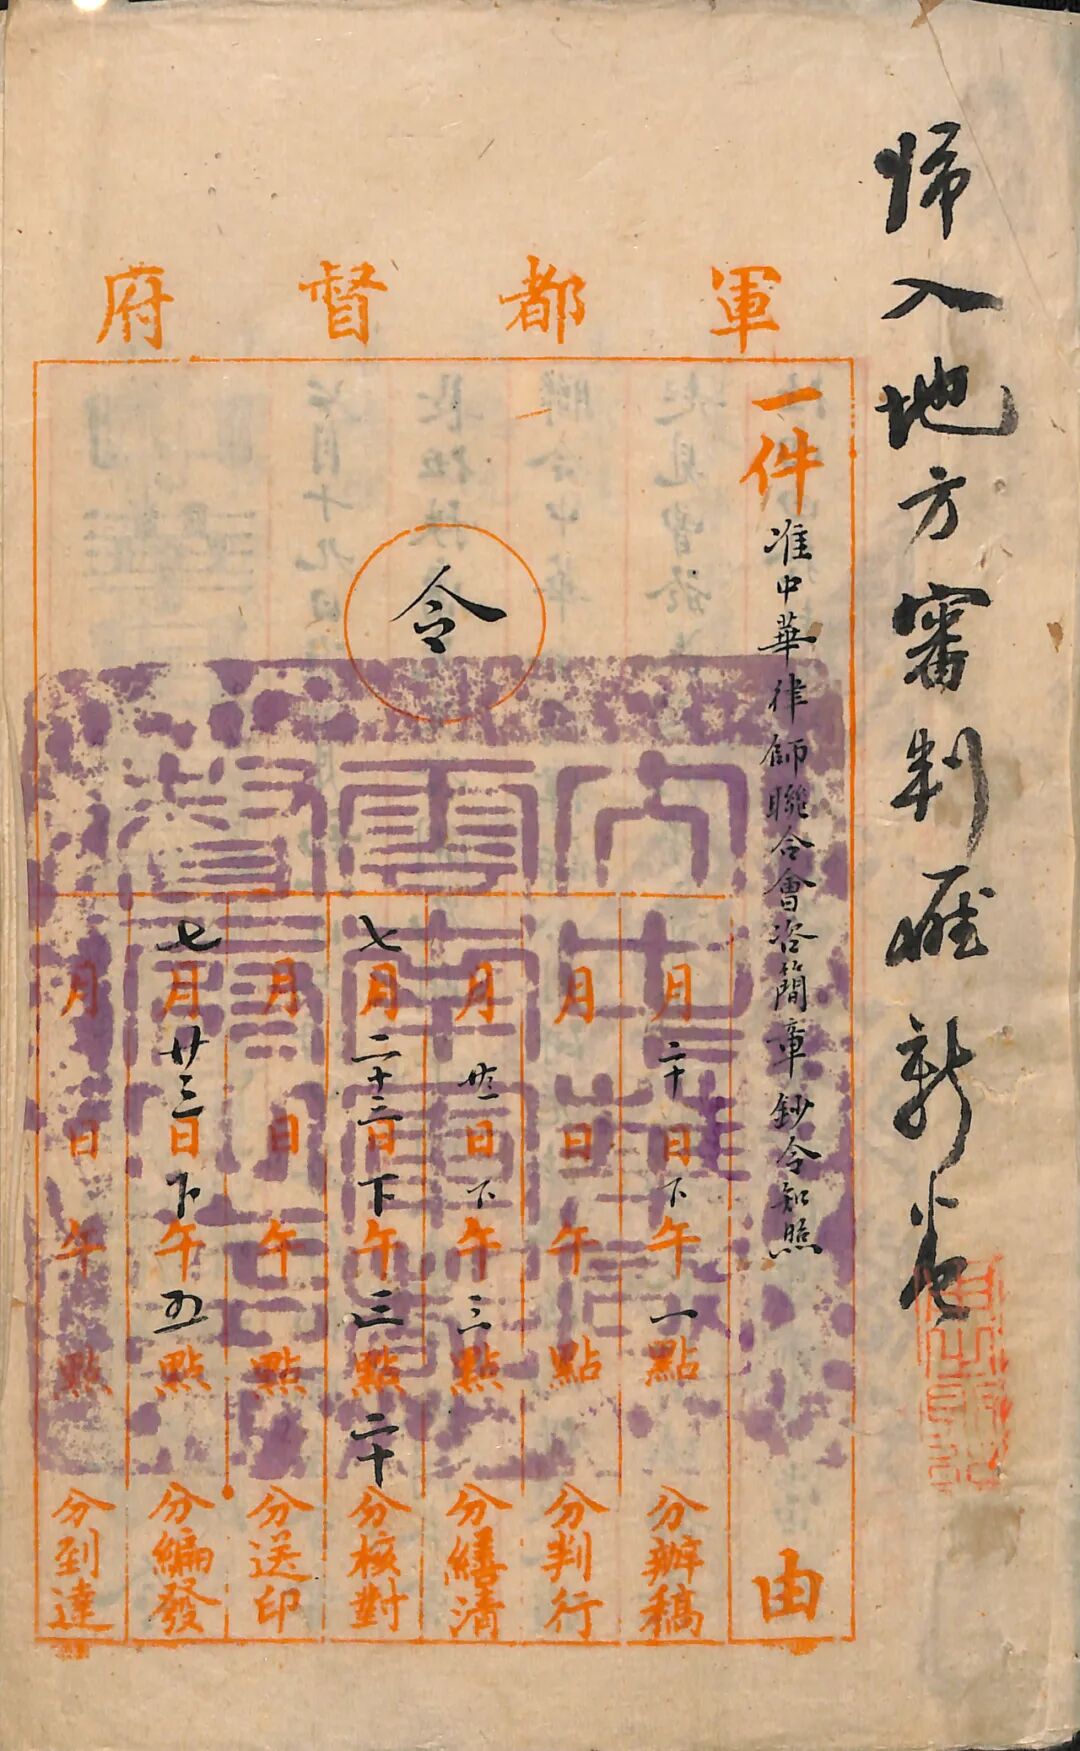 歸入地方審判廳新卷
軍都督府
一件准中華律師聯合會咨簡章鈔令知照由
令
月二十日下午一點分辦稿
月日午點分判行
月廿三日下午三點分繕清
七月二十三日下午三點二十分核對
月日午點分送印
七月廿三日下午五點分編發
月日午點分到達